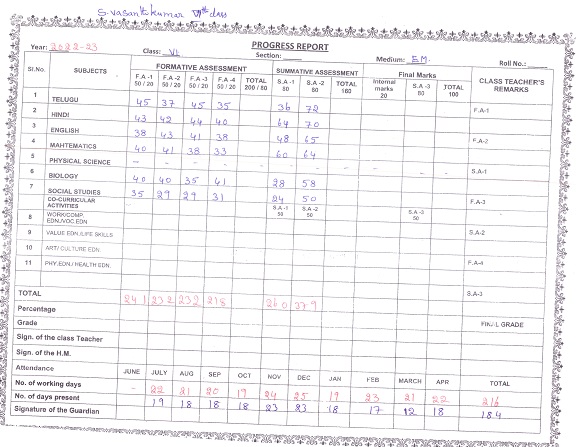 S. Vasanth kumar VIth class
PROGRESS REPORT
Year: 2022-23 Class: VI Section: Medium: EM Roll No.:
Sl.No. SUBJECTS FORMATIVE ASSESSMENT SUMMATIVE ASSESSMENT Final Marks CLASS TEACHER'S REMARKS
F.A -1 50 / 20 F.A -2 50 / 20 F.A -3 50 / 20 F.A -4 50 / 20 TOTAL 200 / 80 S.A -1 80 S.A -2 80 TOTAL 160 Internal marks 20 S.A -3 80 TOTAL 100
1 TELUGU 45 37 45 35 36 72 F.A-1
2 HINDI 43 42 44 40 64 70
3 ENGLISH 38 43 41 38 48 65 F.A-2
4 MAHTEMATICS 40 41 38 33 60 64
5 PHYSICAL SCIENCE - - - - - - - - - - - S.A-1
6 BIOLOGY 40 40 35 41 28 58
7 SOCIAL STUDIES 35 29 29 31 24 50 F.A-3
CO-CURRICULAR ACTIVITIES S.A -1 50 S.A -2 50 S.A -3 50
8 WORK/COMP. EDN./VOC EDN
9 VALUE EDN./LIFE SKILLS S.A-2
10 ART/ CULTURE EDN.
11 PHY.EDN./ HEALTH EDN. F.A-4
S.A-3
TOTAL 241 232 232 218 260 379
Percentage
Grade FINAL GRADE
Sign. of the class Teacher
Sign. of the H.M.
Attendance JUNE JULY AUG SEP OCT NOV DEC JAN FEB MARCH APR TOTAL
No. of working days - 22 21 20 19 24 25 19 23 21 22 216
No. of days present 19 18 18 18 23 23 18 17 12 18 184
Signature of the Guardian